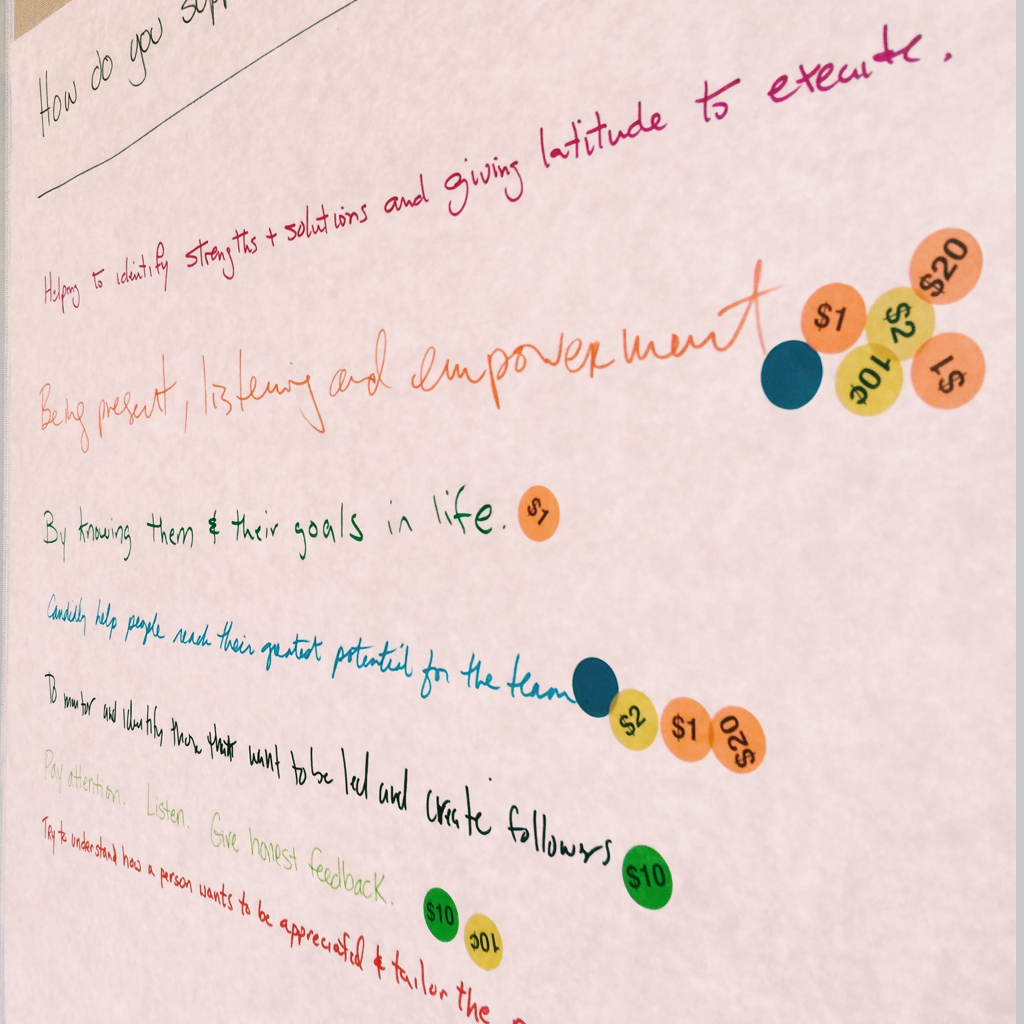 How do you supp
Helping to identify strengths + solutions and giving latitude to execute.
$20
$1 $2
Being present, listening and empowerment
10¢ $1
By knowing them & their goals in life. $1
Candidly help people reach their greatest potential for the team
$2 $1 $20
To mentor and identify those that want to be led and create followers
$10
Pay attention. Listen. Give honest feedback.
$10 10¢
Try to understand how a person wants to be appreciated & tailor the